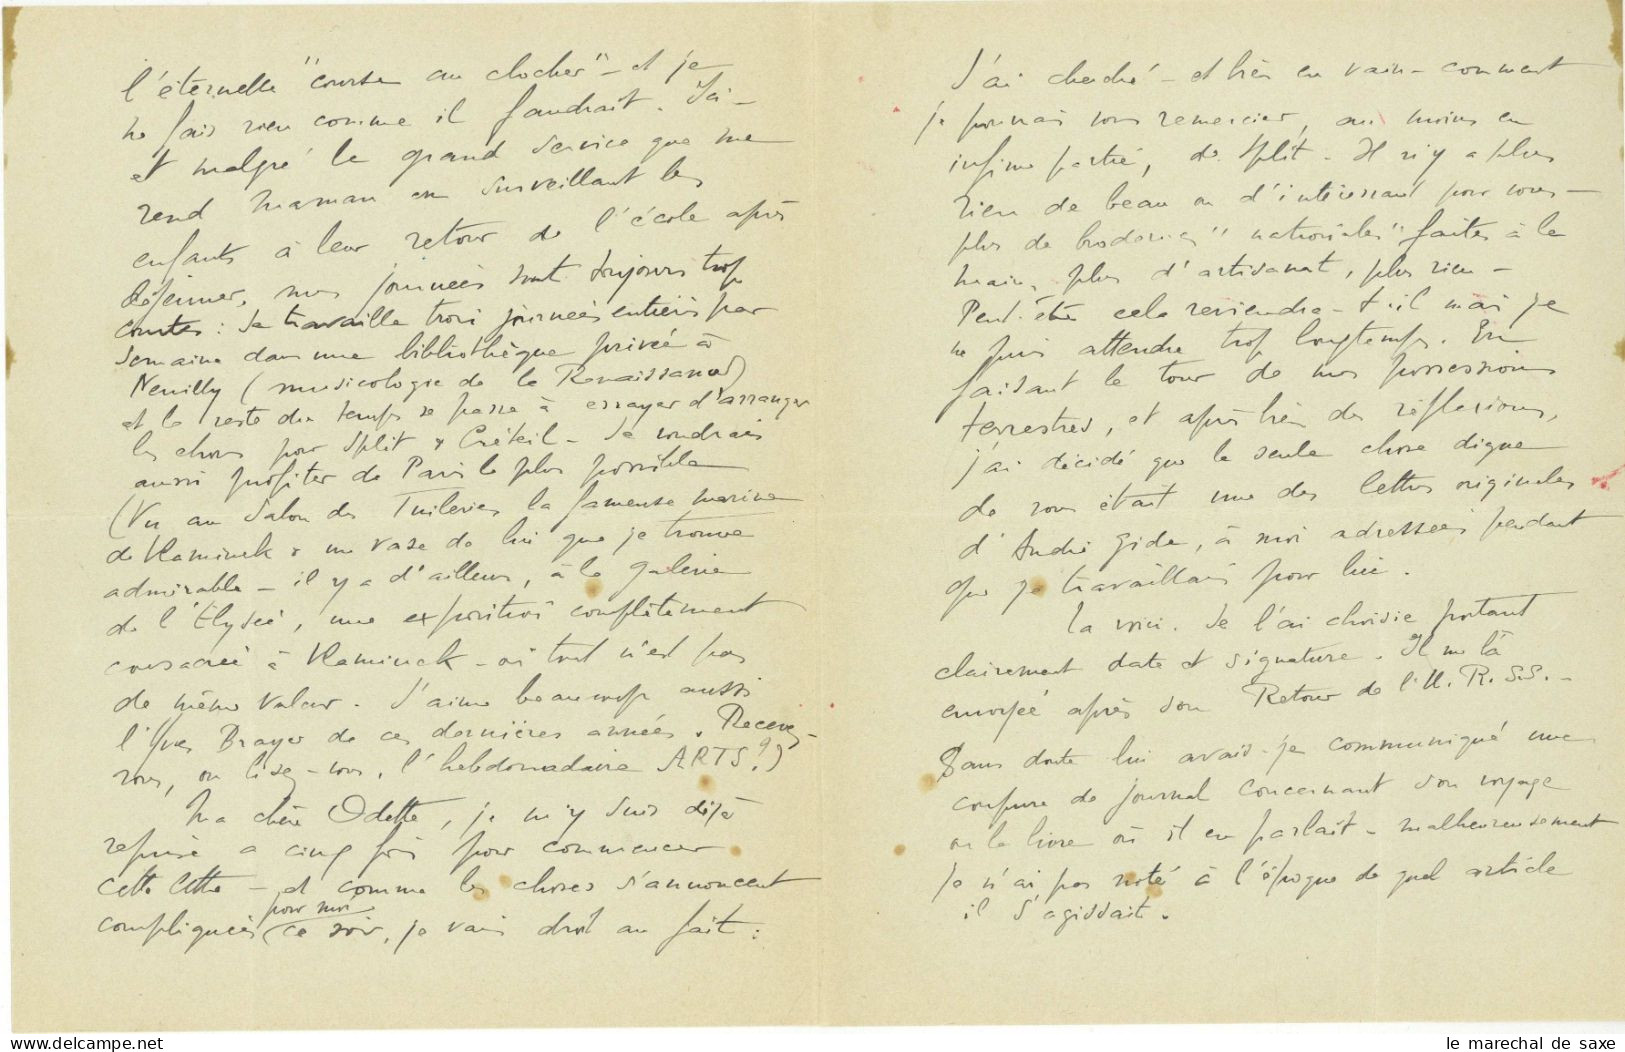 l'éternelle "course au clocher" - et je
ne fais rien comme il faudrait. Ici -
et malgré le grand service que me
rend maman en surveillant les
enfants à leur retour de l'école après
déjeuner, mes journées sont toujours trop
courtes : Je travaille trois journées entières par
semaine dans une bibliothèque privée à
Neuilly (musicologie de la Renaissance)
et le reste du temps se passe à essayer d'arranger
les choses pour Split & Créteil - Je voudrais
aussi profiter de Paris le plus possible
(Vu au Salon des Tuileries la fameuse marine
de Vlaminck & un vase de lui que je trouve
admirable - il y a d'ailleurs, à la galerie
de l'Elysée, une exposition complètement
consacrée à Vlaminck - où tout n'est pas
de même valeur. J'aime beaucoup aussi
l'Yves Brayer de ces dernières années. Recevez-
vous, ou lisez-vous, l'hebdomadaire ARTS ?)
Ma chère Odette, je m'y suis déjà
reprise à cinq fois pour commencer
cette lettre - et comme les choses s'annoncent
pour moi
compliquées ce soir, je vais droit au fait :
J'ai cherché - et bien en vain - comment
je pourrais vous remercier, au moins en
infime partie, de Split. Il n'y a plus
rien de beau ou d'intéressant pour vous -
plus de broderies "nationales" faites à la
main, plus d'artisanat, plus rien -
Peut-être cela reviendra-t-il mais je
ne puis attendre trop longtemps. En
faisant le tour de mes possessions
terrestres, et après bien des réflexions,
j'ai décidé que la seule chose digne
de vous était une des lettres originales
d'André Gide, à moi adressées pendant
que je travaillais pour lui.
La voici. Je l'ai choisie portant
clairement date et signature. Il me l'a
envoyée après son Retour de l'U.R.S.S. -
Sans doute lui avais-je communiqué une
coupure de journal concernant son voyage
ou le livre où il en parlait - malheureusement
je n'ai pas noté à l'époque de quel article
il s'agissait.
le marechal de saxe